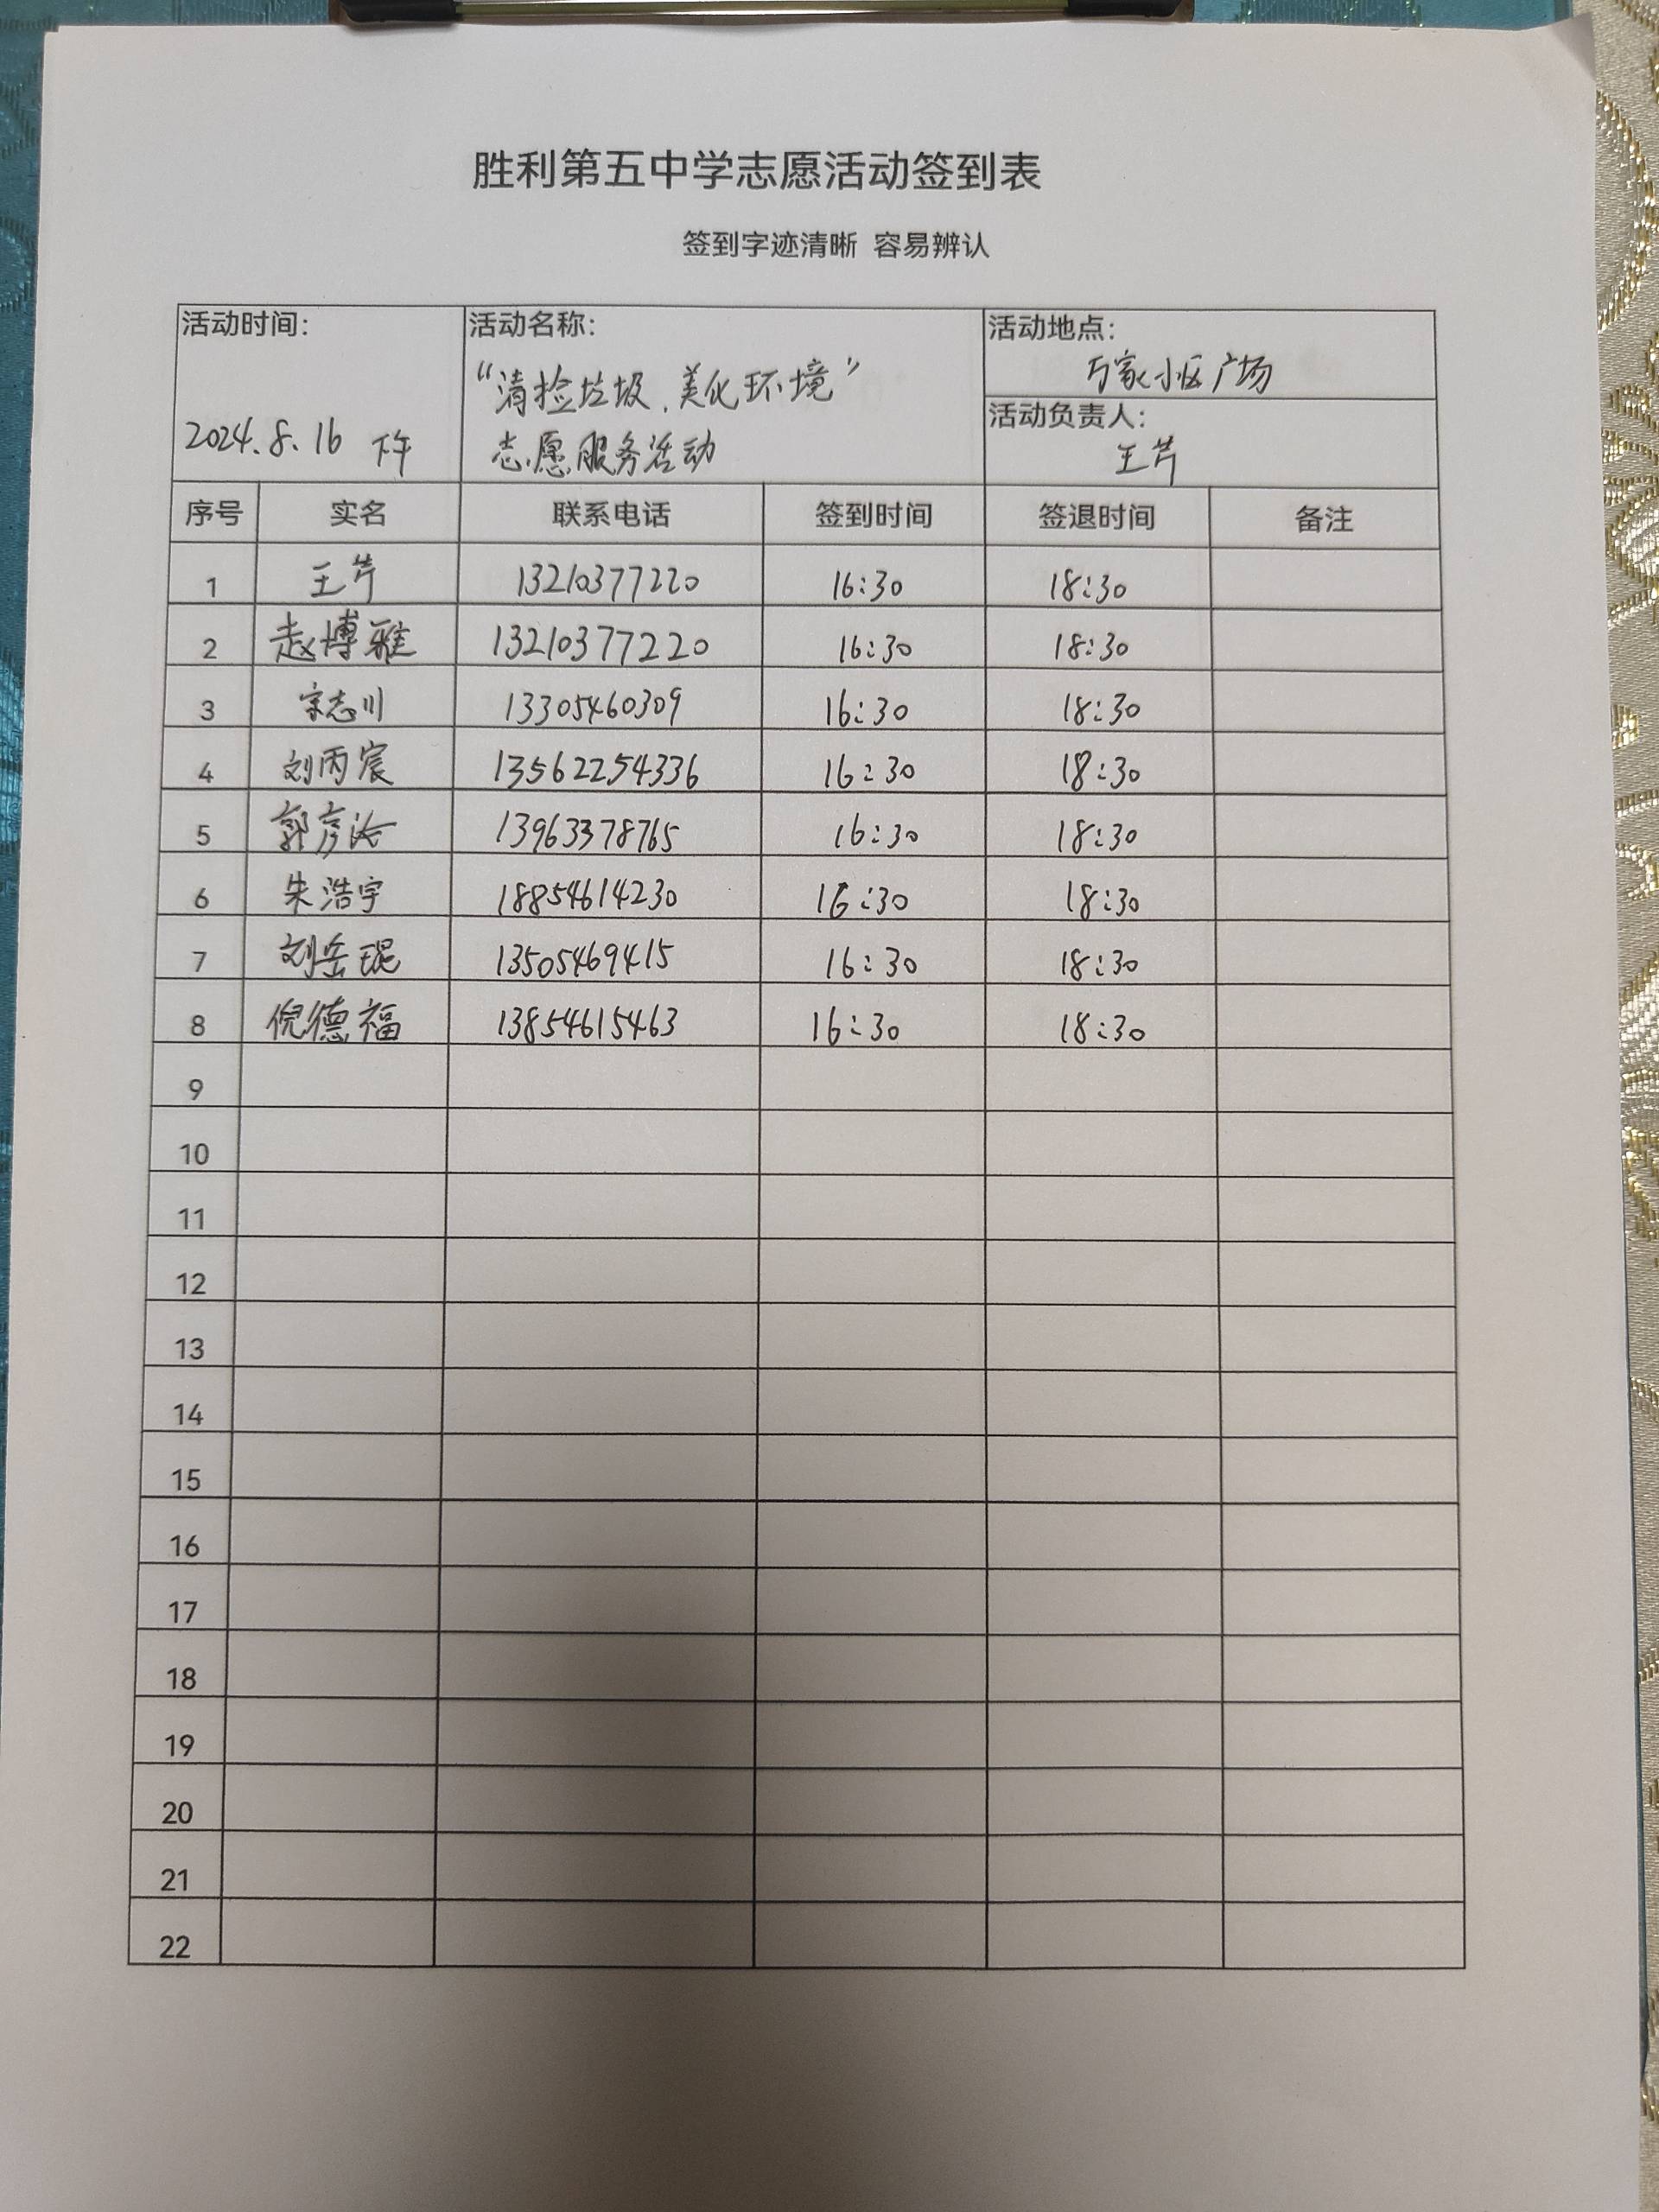 胜利第五中学志愿活动签到表
签到字迹清晰 容易辨认
活动时间：
2024.8.16 下午
活动名称：
“清捡垃圾、美化环境”
志愿服务活动
活动地点：
万家小区广场
活动负责人：
王芹
序号 实名 联系电话 签到时间 签退时间 备注
1 王芹 13210377220 16:30 18:30
2 赵博雅 13210377220 16:30 18:30
3 宋志川 13305460309 16:30 18:30
4 刘丙宸 13562254336 16:30 18:30
5 郭彦 13963378765 16:30 18:30
6 朱浩宇 18854614230 16:30 18:30
7 刘岳琨 13505469415 16:30 18:30
8 倪德福 13854615463 16:30 18:30
9
10
11
12
13
14
15
16
17
18
19
20
21
22